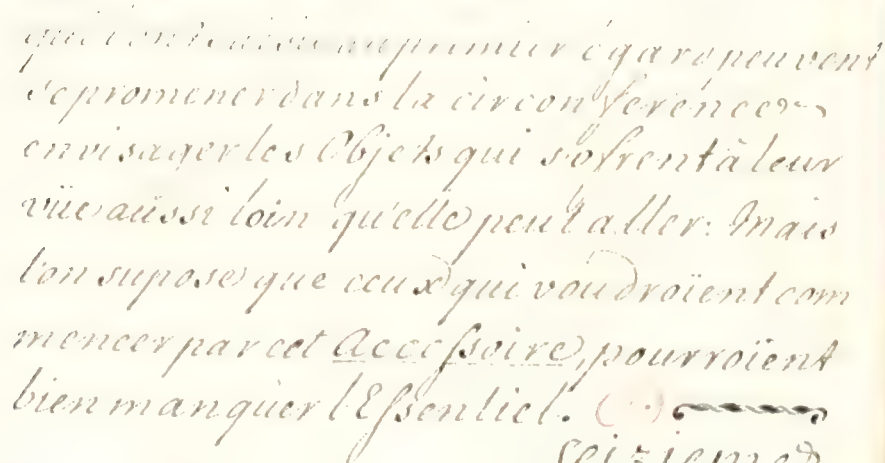 au premier égard peuvent
se promener dans la circonference
envisager les Objets qui s'ofrent à leur
vüe aüssi loin qu'elle peut aller: Mais
l'on supose que ceux qui voudroïent com
mencer par cet Accessoire, pourroïent
bien manqüer l'Essentiel. (··)
seizieme